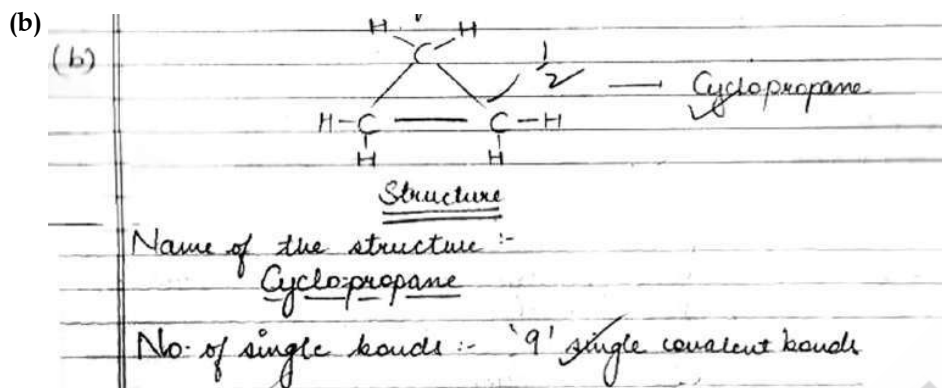 (b)
(b)
H H
C
1/2 — Cyclopropane
H-C — C-H
H H
Structure
Name of the structure :-
Cyclo-propane
No. of single bonds :- '9' single covalent bonds